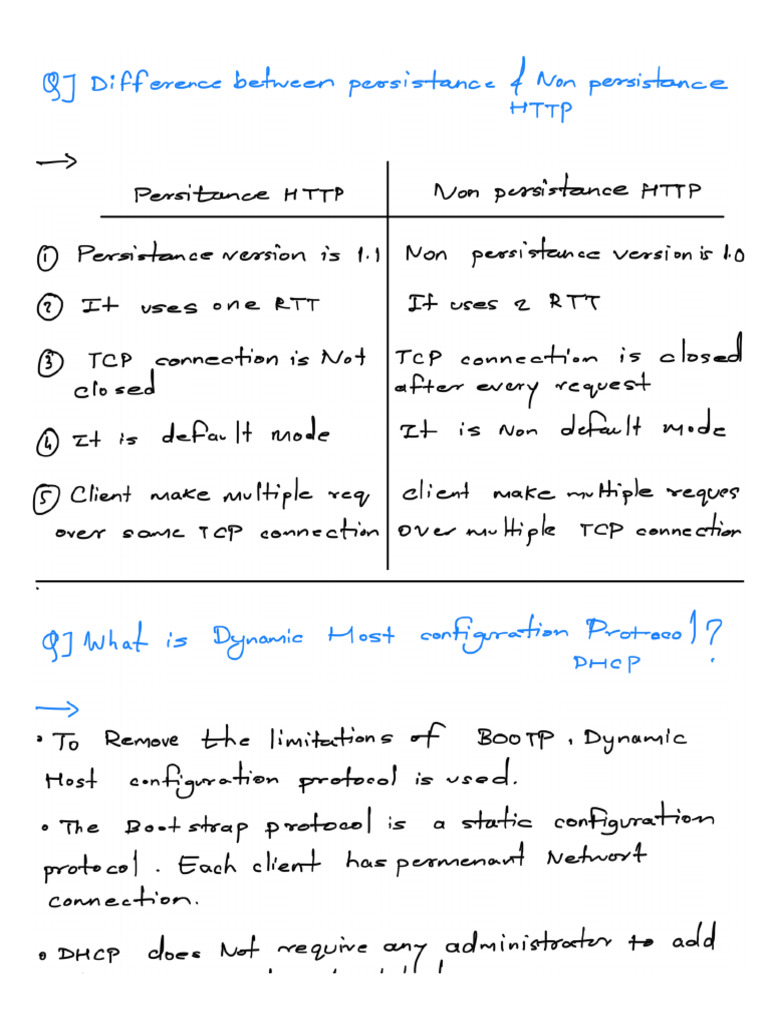 Q] Difference between persistance & Non persistance
HTTP
→
Persitance HTTP | Non persistance HTTP
① Persistance version is 1.1 | Non persistance version is 1.0
② It uses one RTT | It uses 2 RTT
③ TCP connection is Not | TCP connection is closed
closed | after every request
④ It is default mode | It is Non default mode
⑤ Client make multiple req | client make multiple reques
over same TCP connection | over multiple TCP connection
Q] What is Dynamic Host configuration Protocol?
DHCP
→
• To Remove the limitations of BOOTP, Dynamic
Host configuration protocol is used.
• The Bootstrap protocol is a static configuration
protocol. Each client has permenant Network
connection.
• DHCP does Not require any administrator to add